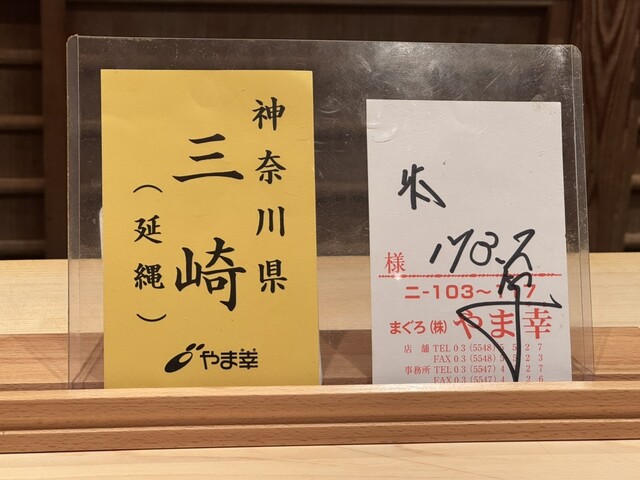 神奈川県
三崎
(延縄)
やま幸
様
ニ-103~
まぐろ(株)やま幸
店舗 TEL 03(5548)
FAX 03(5548)
事務所 TEL 03(5547)
FAX 03(5547)